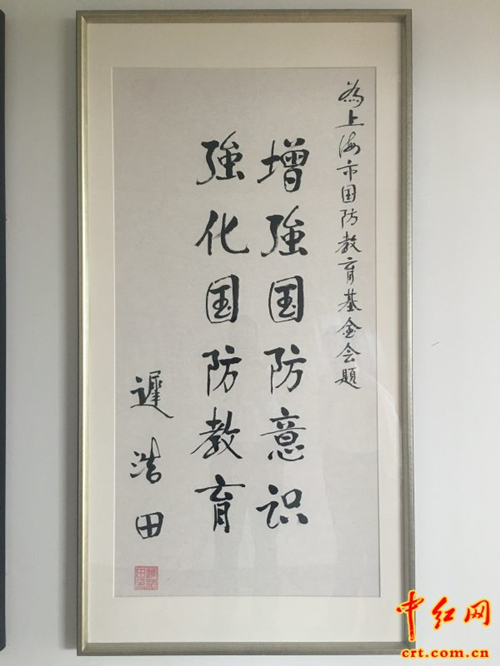 為上海市国防教育基金会题
增強国防意识
強化国防教育
遲浩田
中红网
crt.com.cn